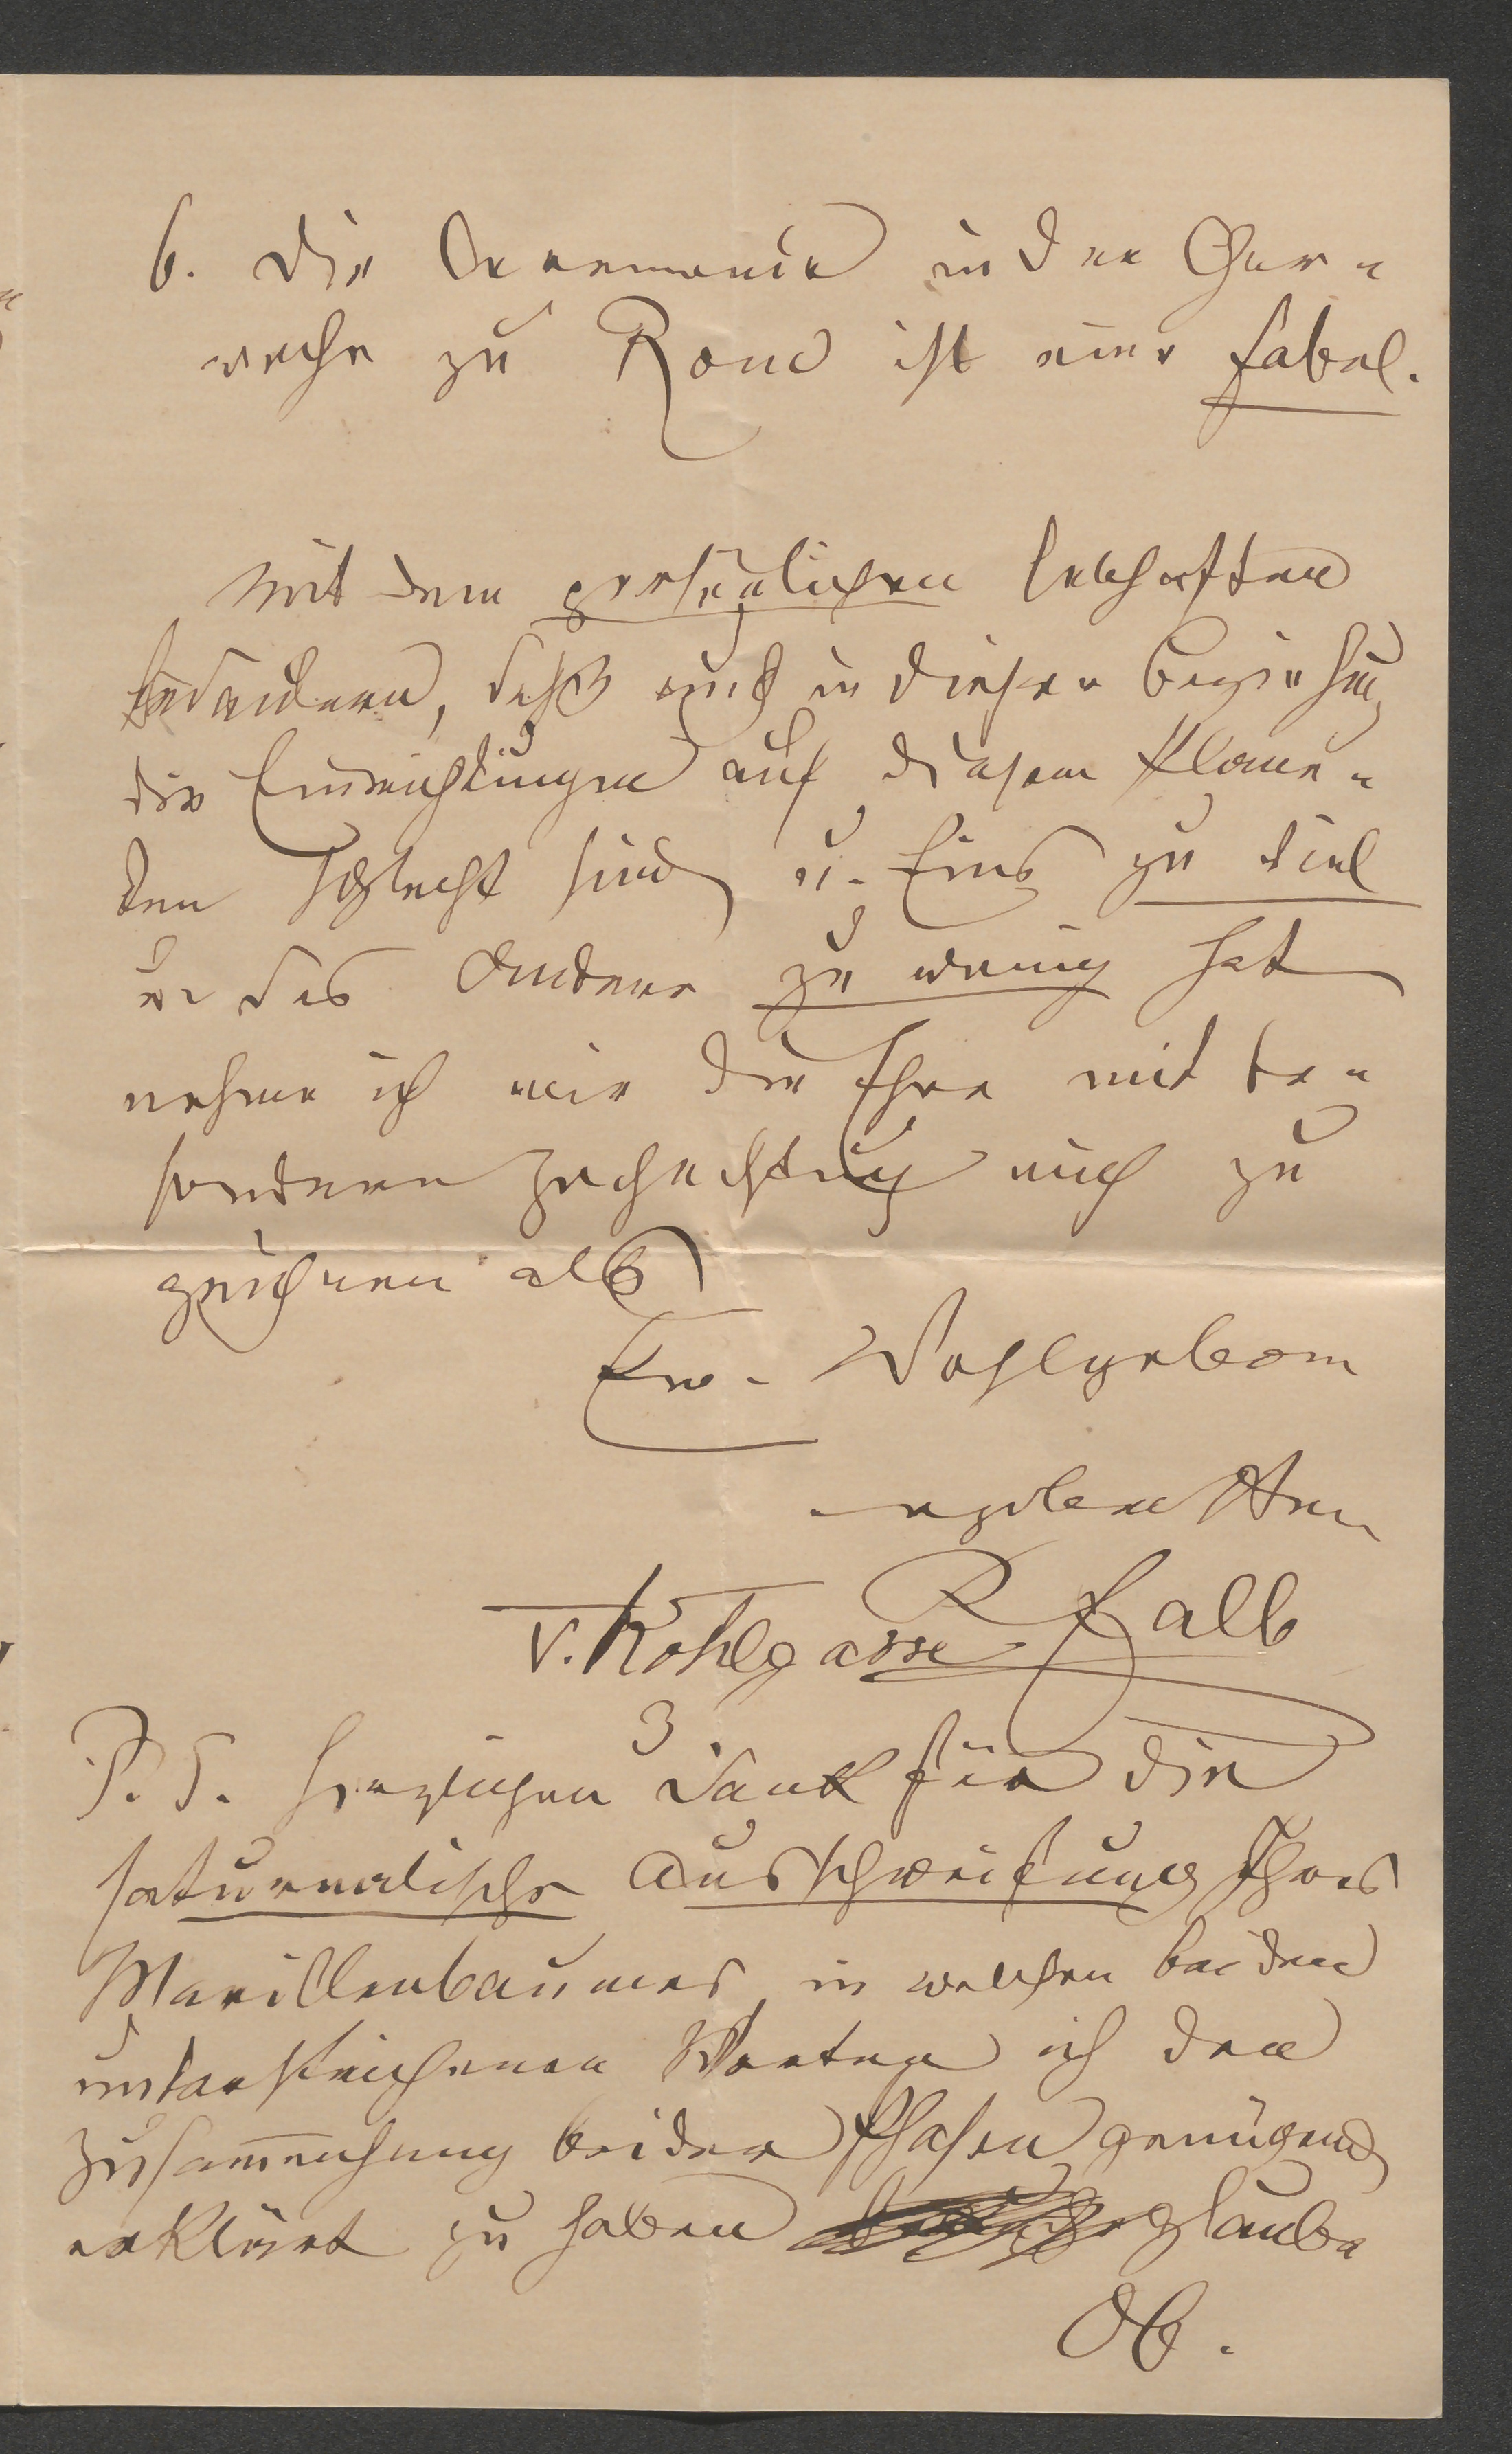 6. Die Ceremonie in der Char-
woche zu Rom ist eine Fabel.
Mit dem persönlichen lebhaften
Bedauern, daß auch in dieser Beziehung
die Einrichtungen auf diesem Plane-
ten schlecht sind u. Eins zu viel
u. das Andere zu wenig hat
nehme ich mir die Ehre mit be-
sonderer Hochachtung mich zu
zeichnen als
Ew. Wohlgeborn
ergebensten
R Falb
V. Kohlgasse
3
P.S. Herzlichen Dank für die
saturnalische Ausschweifung Ihres
Marillenbaumes, in welchen beiden
unterstrichenen Worten ich den
Zusammenhang beider Phasen genügend
erklärt zu haben glaube
Ob.